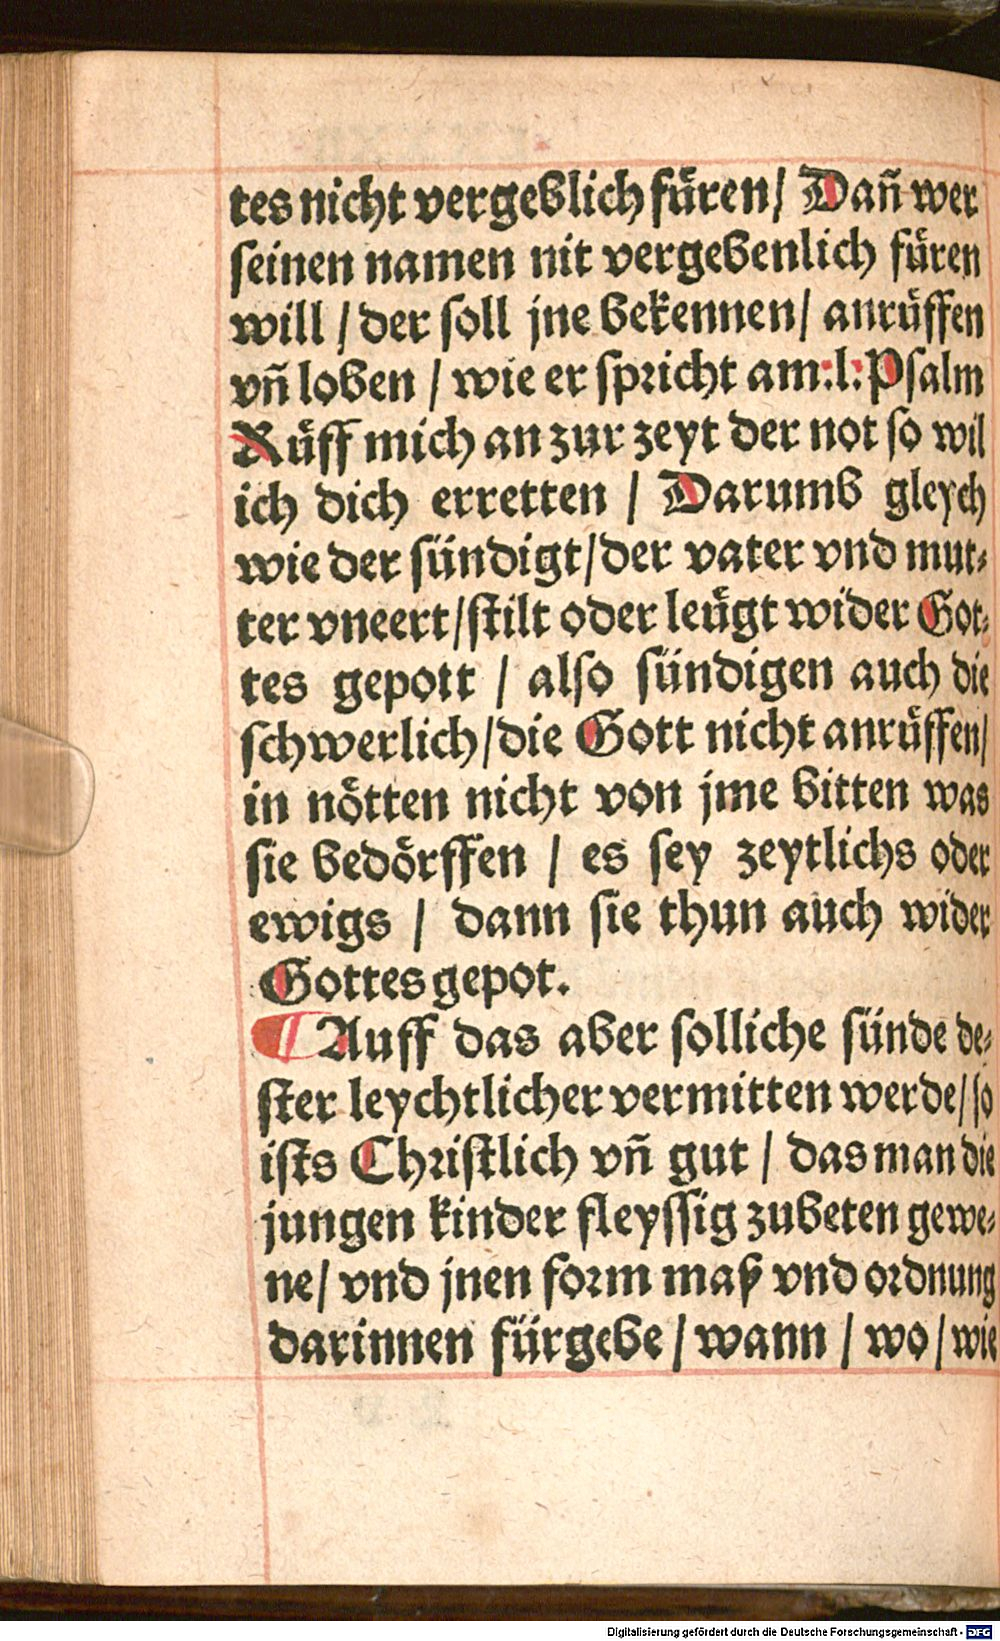 tes nicht vergeblich fu̎ren/ Dañ wer
seinen namen nit vergebenlich fu̎ren
will / der soll jne bekennen/ anru̎ffen
vñ loben / wie er spricht am:l:Psalm
Ru̎ff mich an zur zeyt der not so wil
ich dich erretten / Darumb gleych
wie der sündigt/der vater vnd mut⸗
ter vneert/stilt oder leu̎gt wider Got⸗
tes gepott / also sündigen auch die
schwerlich/die Gott nicht anru̎ffen/
in nötten nicht von jme bitten was
sie bedörffen / es sey zeytlichs oder
ewigs / dann sie thun auch wider
Gottes gepot.
¶ Auff das aber solliche sünde de⸗
ster leychtlicher vermitten werde/so
ists Christlich vñ gut / das man die
jungen kinder fleyssig zubeten gewe⸗
ne/ vnd jnen form maß vnd ordnung
darinnen fürgebe / wann / wo / wie
Digitalisierung gefördert durch die Deutsche Forschungsgemeinschaft - DFG